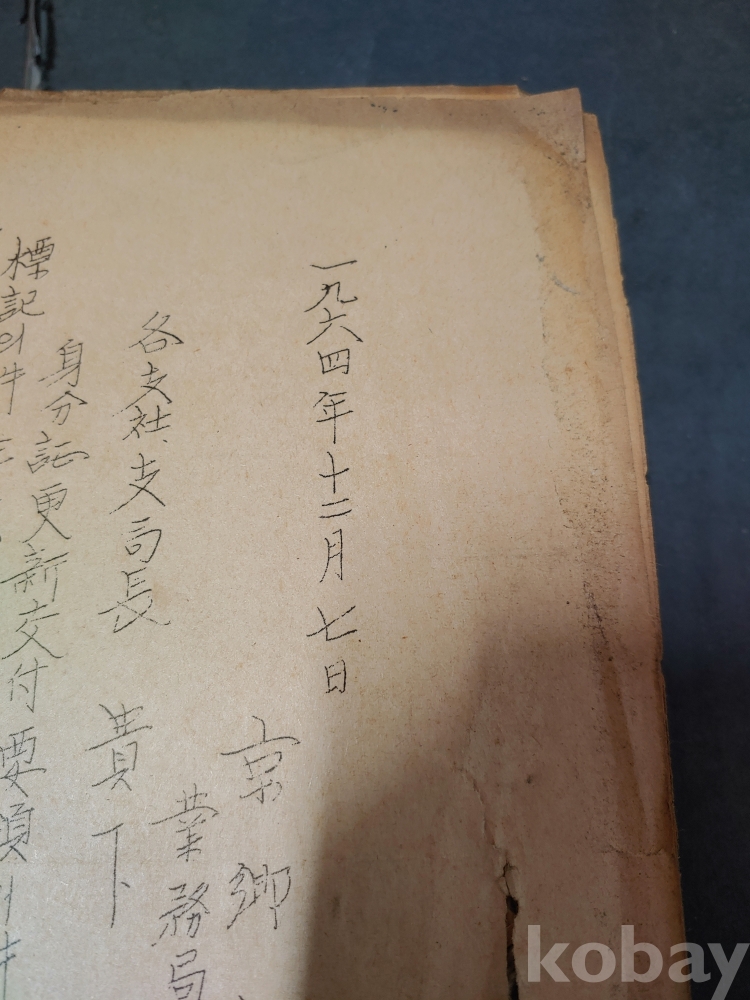 一九六四年十二月七日
京鄕
業務局
各支社、支局長 貴下
身分証更新交付要項의件
標記의件
kobay